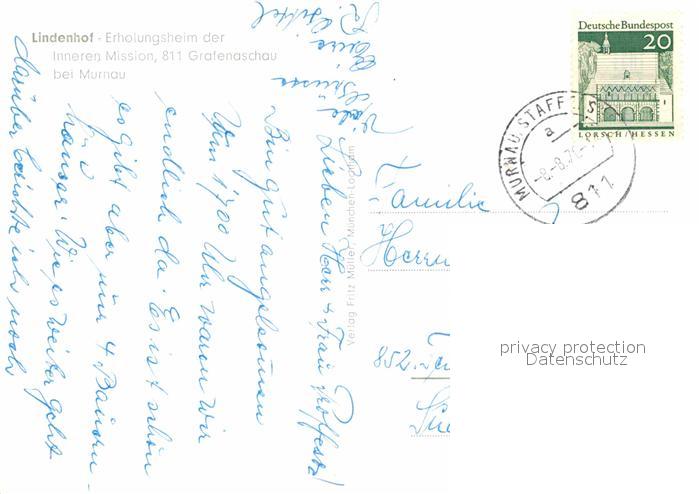 Lindenhof - Erholungsheim der
Inneren Mission, 811 Grafenaschau
bei Murnau
Verlag Fritz Müller, München-Lochham
Deutsche Bundespost
20
LORSCH / HESSEN
MURNAU, STAFF
a
-8.-8.70-
811
Lieben Herr & Frau Professor
Bin gut angekommen
Um 17.00 Uhr waren wir
endlich da. Es ist schön
es gibt aber nur 4 Bauern-
häuser. Wie es weiter geht
darüber berichte ich noch
Viele Grüsse
Familie
Herrn
852
privacy protection
Datenschutz